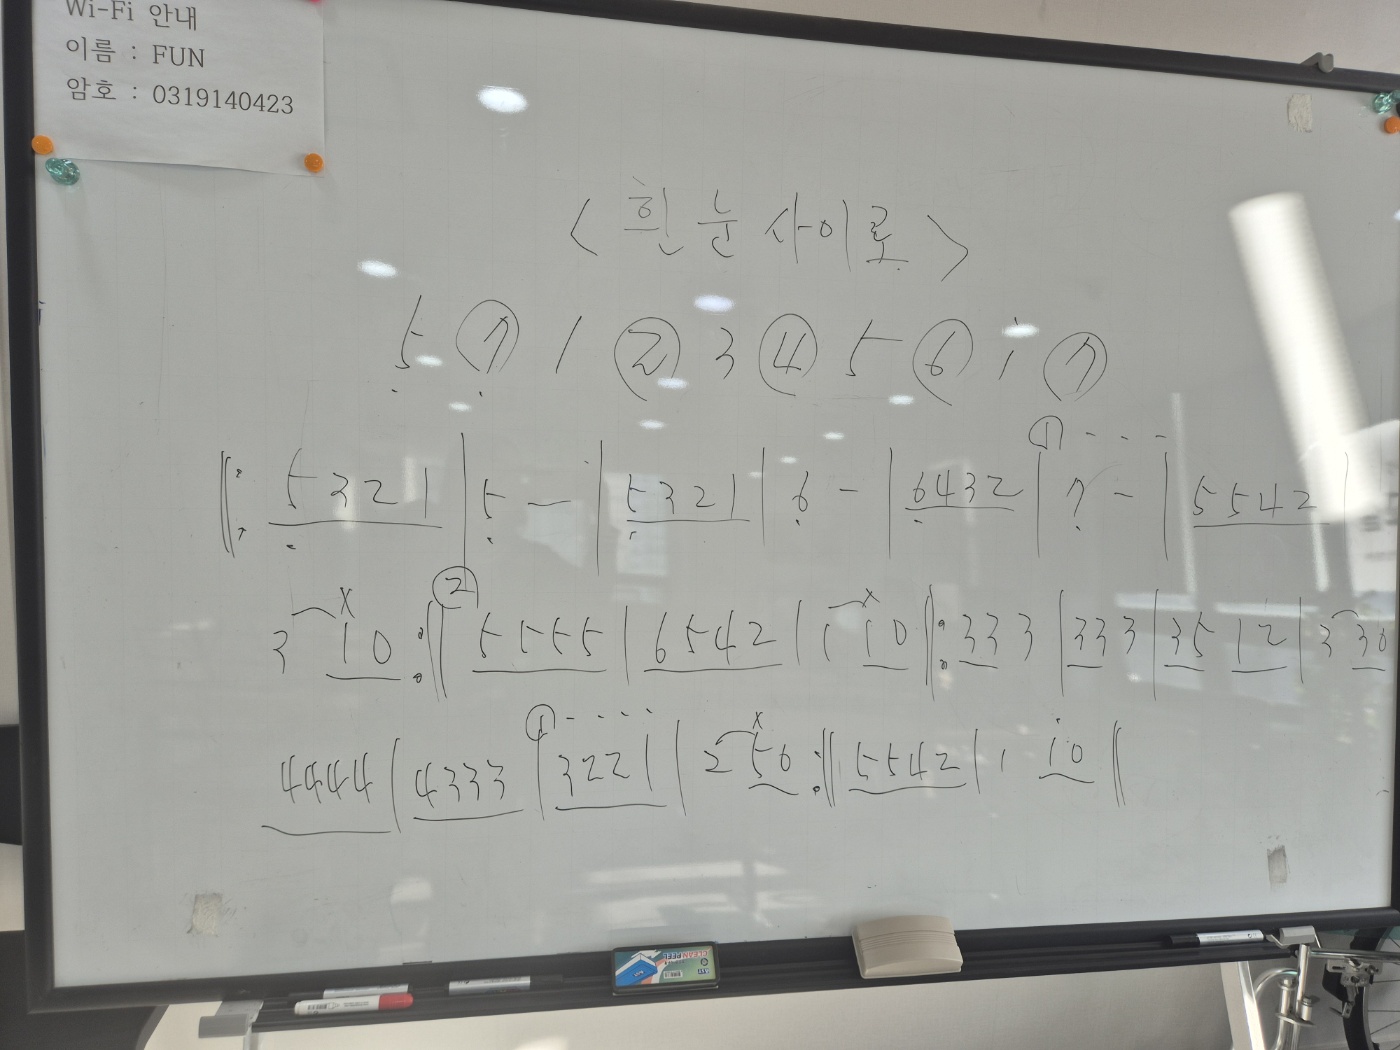 Wi-Fi 안내
이름 : FUN
암호 : 0319140423
< 흰 눈 사이로 >
5 7 1 2 3 4 5 6 i 7
5321 | 5 - | 5321 | 6 - | 6432 | ① 7 - | 5542 |
3 10 :|| ② 5555 | 6542 | 1 10 ||: 33 3 | 33 3 | 35 12 | 3 30
4444 | 4333 | ① 3221 | 2 50 :|| 5542 | 1 i0 ||
CLEAN PEEL